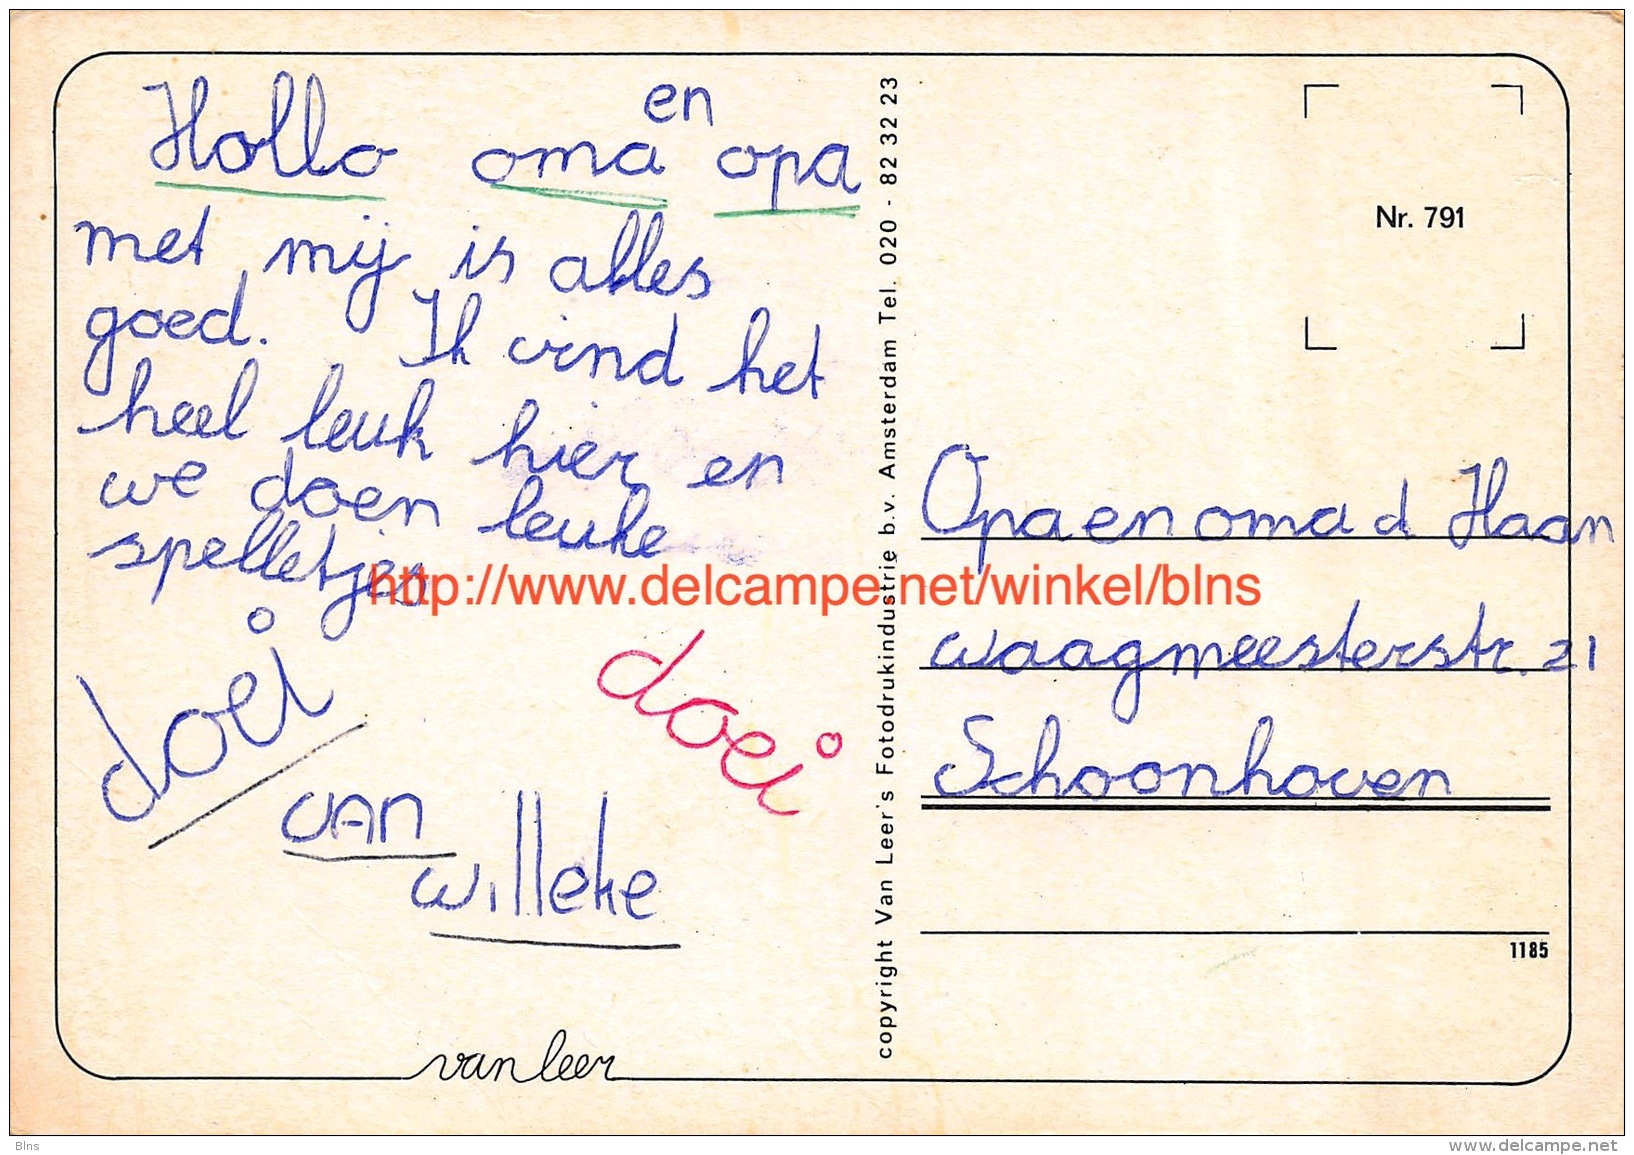 Hollo oma en opa
met mij is alles
goed. Ik vind het
heel leuk hier en
we doen leuke
spelletjes
doei
doei
van
willeke
van leer
copyright Van Leer's Fotodrukindustrie b.v. Amsterdam Tel. 020 - 82 32 23
Nr. 791
Opa en oma d Haan
waagmeesterstr. 21
Schoonhoven
1185
http://www.delcampe.net/winkel/blns
Blns
www.delcampe.net